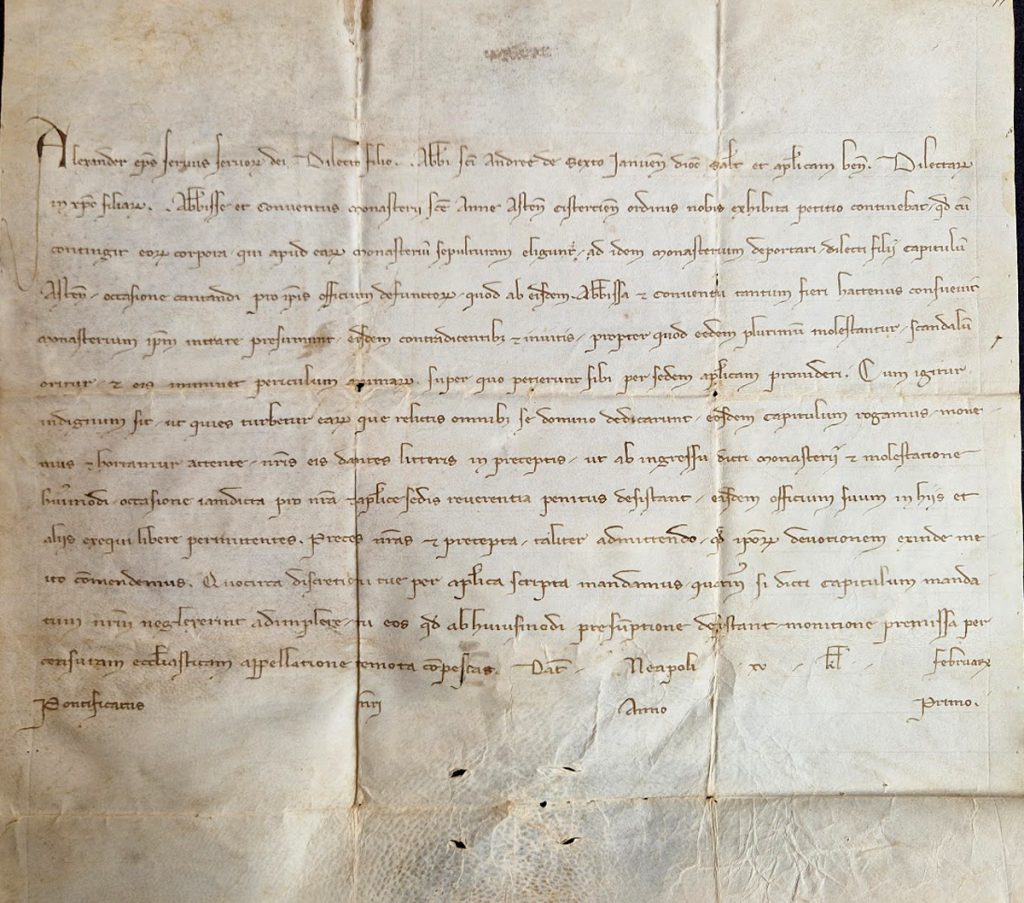 Alexander eps servus servor dei. Dilecto filio.. Abbi sci Andree de Sexto Januen dioc salt et aplicam ben. Dilectar
in xpo filiar.. Abbisse et Conventus monasterii sce Anne Asten Cistercien ordinis nobis exhibita petitio continebat, qd cu
contingit eor corpora, qui apud ear monasteriu sepulturam eligunt, ad idem monasterium deportari, dilecti filij capitulu
Asten, occasione cantandi pro ipsis officium defunctor, quod ab eisdem Abbissa et Conventu tantum fieri hactenus consuevit
monasterium ipm intrare presumunt, eisdem contradicentibz et invitis, propter quod eedem plurimu molestantur, scandalu
oritur, et eis imminet periculum animar. Super quo petierunt sibi per sedem aplicam provideri. Cum igitur
indignum sit, ut quies turbetur ear que relictis omnibz se domino dedicarunt, eosdem capitulum rogamus, mone-
mus et hortamur attente, nris eis dantes litteris in preceptis, ut ab ingressu dicti monasterij et molestatione
huiusmodi, occasione iamdicta pro nra et aplice sedis reverentia penitus desistant, eisdem officium suum in hiis et
aliis exequi libere permittentes. Preces nras et precepta, taliter admittendo, qd ipor devotionem exinde me-
ito comendemus. Quocirca discretioni tue per aplica scripta mandamus, quatin si dicti capitulum manda-
tum nrm neglexerint adimplere, tu eos qd ab huiusmodi presumptione desistant, monitione premissa per
censuram eccliasticam appellatione remota compescas. Dat Neapoli xv kl Februar
Pontificatus nri Anno Primo.